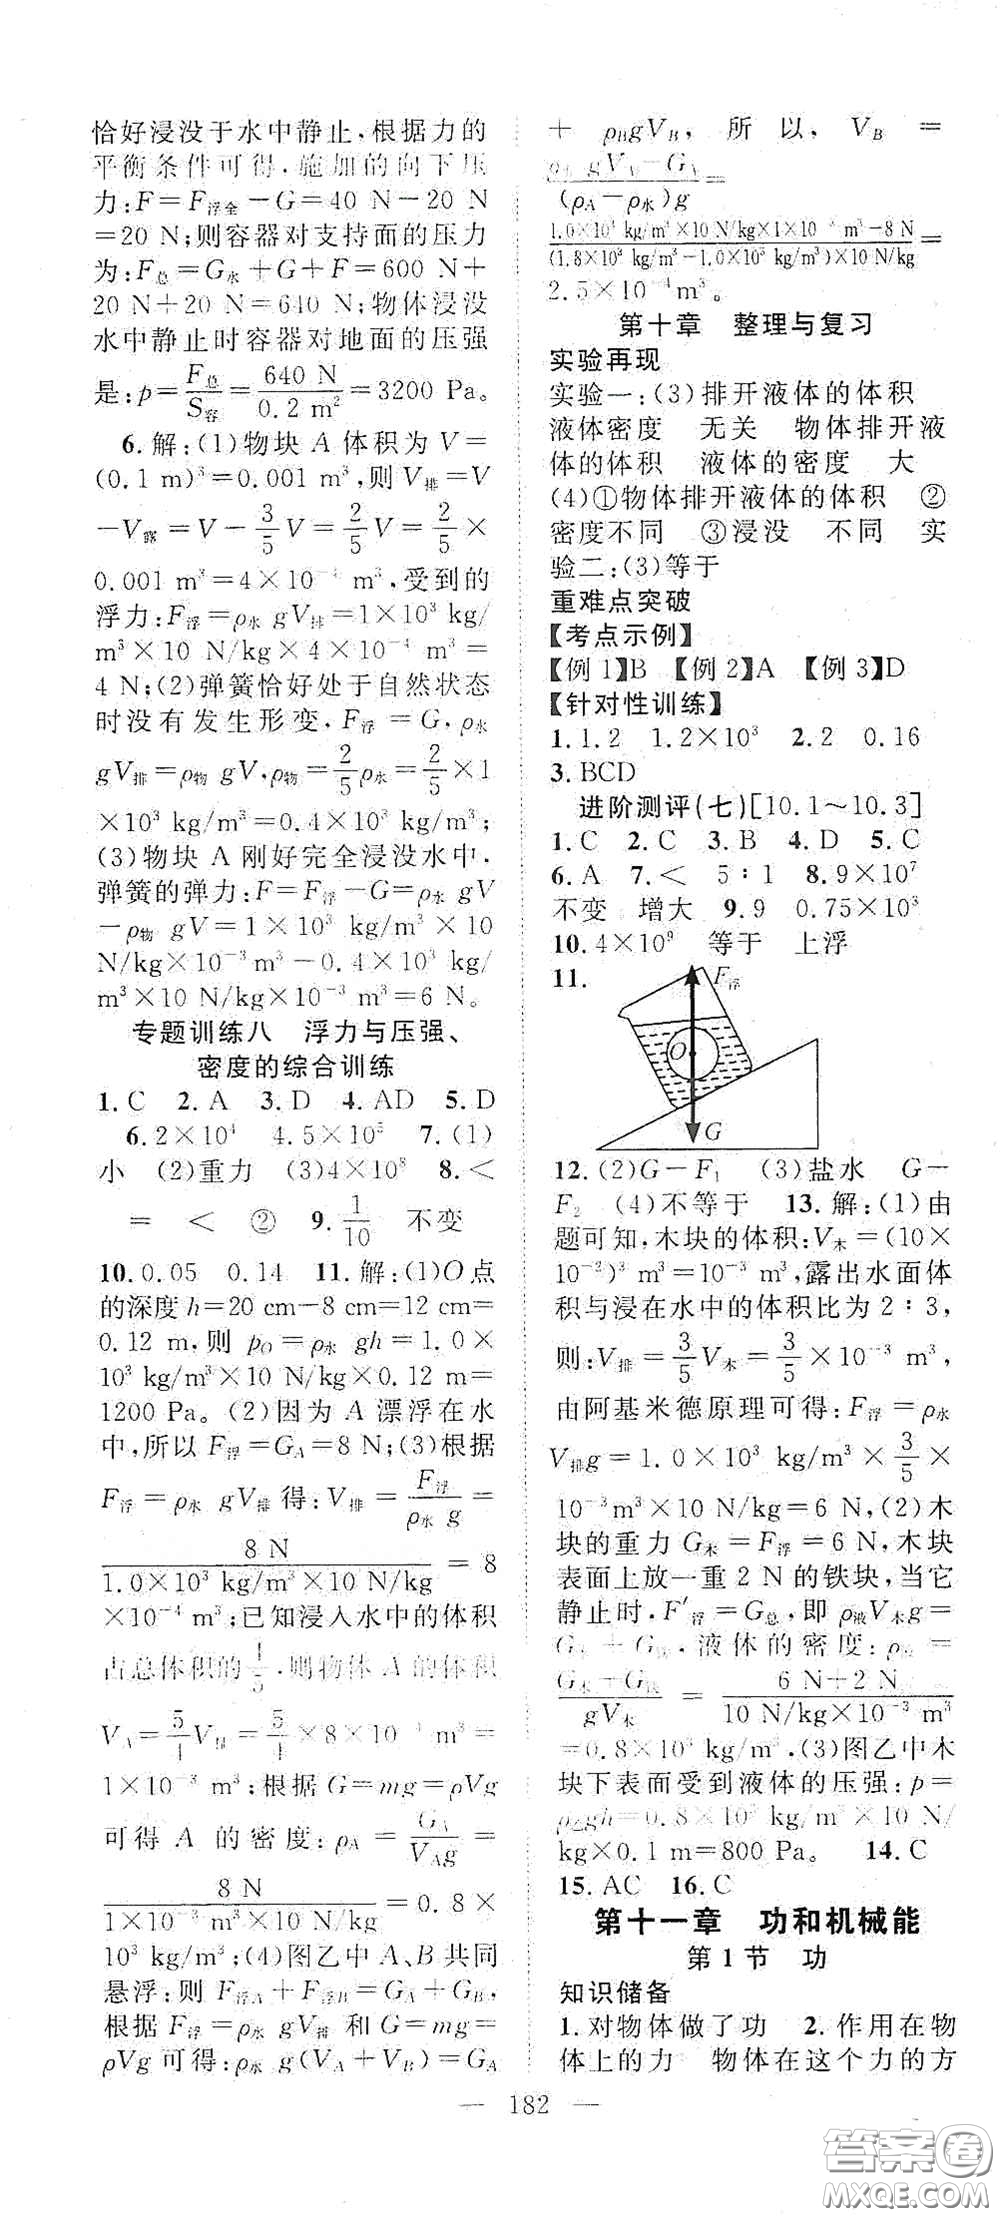 恰好浸没于水中静止,根据力的
平衡条件可得,施加的向下压
力:F=F浮全-G=40 N-20 N
=20 N;则容器对支持面的压力
为:F总=G水+G+F=600 N+
20 N+20 N=640 N;物体浸没
水中静止时容器对地面的压强
是:p=F总/S容=640 N/0.2 m²=3200 Pa。
6.解:(1)物块 A 体积为 V=
(0.1 m)³=0.001 m³,则V排=V
-V露=V-3/5V=2/5V=2/5×
0.001 m³=4×10⁻⁴ m³,受到的
浮力:F浮=ρ水 gV排=1×10³ kg/
m³×10 N/kg×4×10⁻⁴ m³=
4 N;(2)弹簧恰好处于自然状态
时没有发生形变,F浮=G,ρ水
gV排=ρ物 gV,ρ物=2/5ρ水=2/5×1
×10³ kg/m³=0.4×10³ kg/m³;
(3)物块 A 刚好完全浸没水中,
弹簧的弹力:F=F浮-G=ρ水 gV
-ρ物 gV=1×10³ kg/m³×10
N/kg×10⁻³m³-0.4×10³ kg/
m³×10 N/kg×10⁻³ m³=6 N。
专题训练八 浮力与压强、
密度的综合训练
1.C 2.A 3.D 4.AD 5.D
6.2×10⁴ 4.5×10⁵ 7.(1)
小 (2)重力 (3)4×10⁸ 8.<
= < ② 9.1/10 不变
10.0.05 0.14 11.解:(1)O点
的深度h=20 cm-8 cm=12 cm=
0.12 m,则 pO=ρ水 gh=1.0×
10³ kg/m³×10 N/kg×0.12 m=
1200 Pa。(2)因为 A 漂浮在水
中,所以 F浮=GA=8 N;(3)根据
F浮=ρ水 gV排得:V排=F浮/ρ水 g=
8 N/1.0×10³ kg/m³×10 N/kg=8
×10⁻⁴ m³;已知浸入水中的体积
占总体积的4/5,则物体 A 的体积
VA=5/4V排=5/4×8×10⁻⁴ m³=
1×10⁻³ m³;根据 G=mg=ρVg
可得 A 的密度:ρA=GA/VAg=
8 N/1×10⁻³ m³×10 N/kg=0.8×
10³ kg/m³;(4)图乙中A、B共同
悬浮:则 F浮A+F浮B=GA+GB,
根据 F浮=ρ水 gV排 和 G=mg=
ρVg可得:ρ水 g(VA+VB)=GA
+ ρBgVB,所以,VB=
ρ水gVA-GA/(ρA-ρ水)g=
1.0×10³ kg/m³×10 N/kg×1×10⁻³ m³-8 N/(1.8×10³ kg/m³-1.0×10³ kg/m³)×10 N/kg=
2.5×10⁻⁴m³。
第十章 整理与复习
实验再现
实验一:(3)排开液体的体积
液体密度 无关 物体排开液
体的体积 液体的密度 大
(4)①物体排开液体的体积 ②
密度不同 ③浸没 不同 实
验二:(3)等于
重难点突破
【考点示例】
【例1】B 【例2】A 【例3】D
【针对性训练】
1.1.2 1.2×10³ 2.2 0.16
3.BCD
进阶测评(七)[10.1~10.3]
1.C 2.C 3.B 4.D 5.C
6.A 7.< 5∶1 8.9×10⁷
不变 增大 9.9 0.75×10³
10.4×10⁹ 等于 上浮
11.
F浮
O
G
12.(2)G-F₁ (3)盐水 G-
F₂ (4)不等于 13.解:(1)由
题可知,木块的体积:V木=(10×
10⁻²)³ m³=10⁻³ m³,露出水面体
积与浸在水中的体积比为2∶3,
则:V排=3/5V木=3/5×10⁻³ m³,
由阿基米德原理可得:F浮=ρ水
V排g=1.0×10³ kg/m³×3/5×
10⁻³m³×10 N/kg=6 N,(2)木
块的重力G木=F浮=6 N,木块
表面上放一重2 N的铁块,当它
静止时,F′浮=G总,即 ρ液V木g=
G木+G铁,液体的密度:ρ液=
G木+G铁/gV木=6 N+2 N/10 N/kg×10⁻³ m³
=0.8×10³ kg/m³,(3)图乙中木
块下表面受到液体的压强:p=
ρ乙gh=0.8×10³ kg/m³×10 N/
kg×0.1 m=800 Pa。 14.C
15.AC 16.C
第十一章 功和机械能
第1节 功
知识储备
1.对物体做了功 2.作用在物
体上的力 物体在这个力的方
— 182 —
答案圈
MXQE.COM